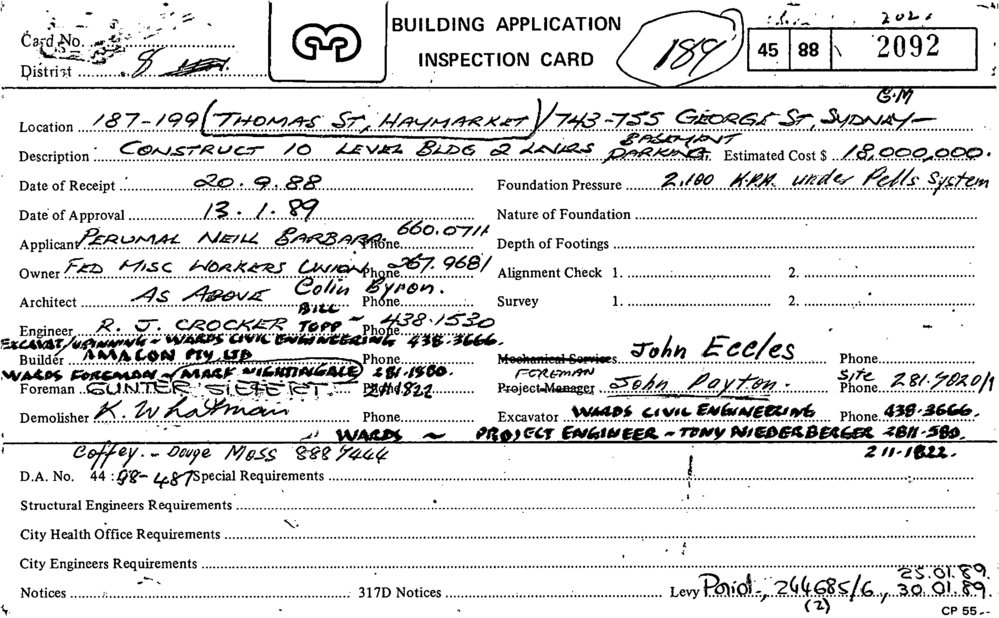 BUILDING APPLICATION
INSPECTION CARD
Card No.
District 8
189
45 88 2092
G.M
Location 187-199 (THOMAS ST, HAYMARKET) / 743-755 GEORGE ST, SYDNEY
Description CONSTRUCT 10 LEVEL BLDG 2 LEVELS BASEMENT PARKING. Estimated Cost $ 18,000,000.
Date of Receipt 20.9.88 Foundation Pressure 2,100 K.P.A. under Pells System
Date of Approval 13.1.89 Nature of Foundation
Applicant PERUMAL NEILL BARBARA Phone 660.0711 Depth of Footings
Owner FED MISC WORKERS UNION Phone 267.9681 Alignment Check 1. 2.
Architect AS ABOVE Colin Byron. Phone Survey 1. 2.
Engineer R. J. CROCKER BILL TOPP ~ Phone 438.1530
EXCAVAT/ - WARDS CIVIL ENGINEERING 438-3666.
Builder AMALCON PTY LTD Phone Mechanical Services John Eccles Phone
WARDS FOREMAN - (MARK NIGHTINGALE) 281-1580.
Foreman GUNTER SIEFERT Phone 211-1822 Project Manager FOREMAN John Payton. Site Phone 281.9020/1
Demolisher K. Whatman Phone Excavator WARDS CIVIL ENGINEERING Phone 438-3666.
WARDS ~ PROJECT ENGINEER - TONY NIEDERBERGER 2811-580.
Coffey. - Douge Moss 888 7444 211-1822.
D.A. No. 44 : 88-487 Special Requirements
Structural Engineers Requirements
City Health Office Requirements
City Engineers Requirements
25.01.89.
Notices 317D Notices Levy Paid -, 244685/6, 30.01.89.
(2)
CP 55